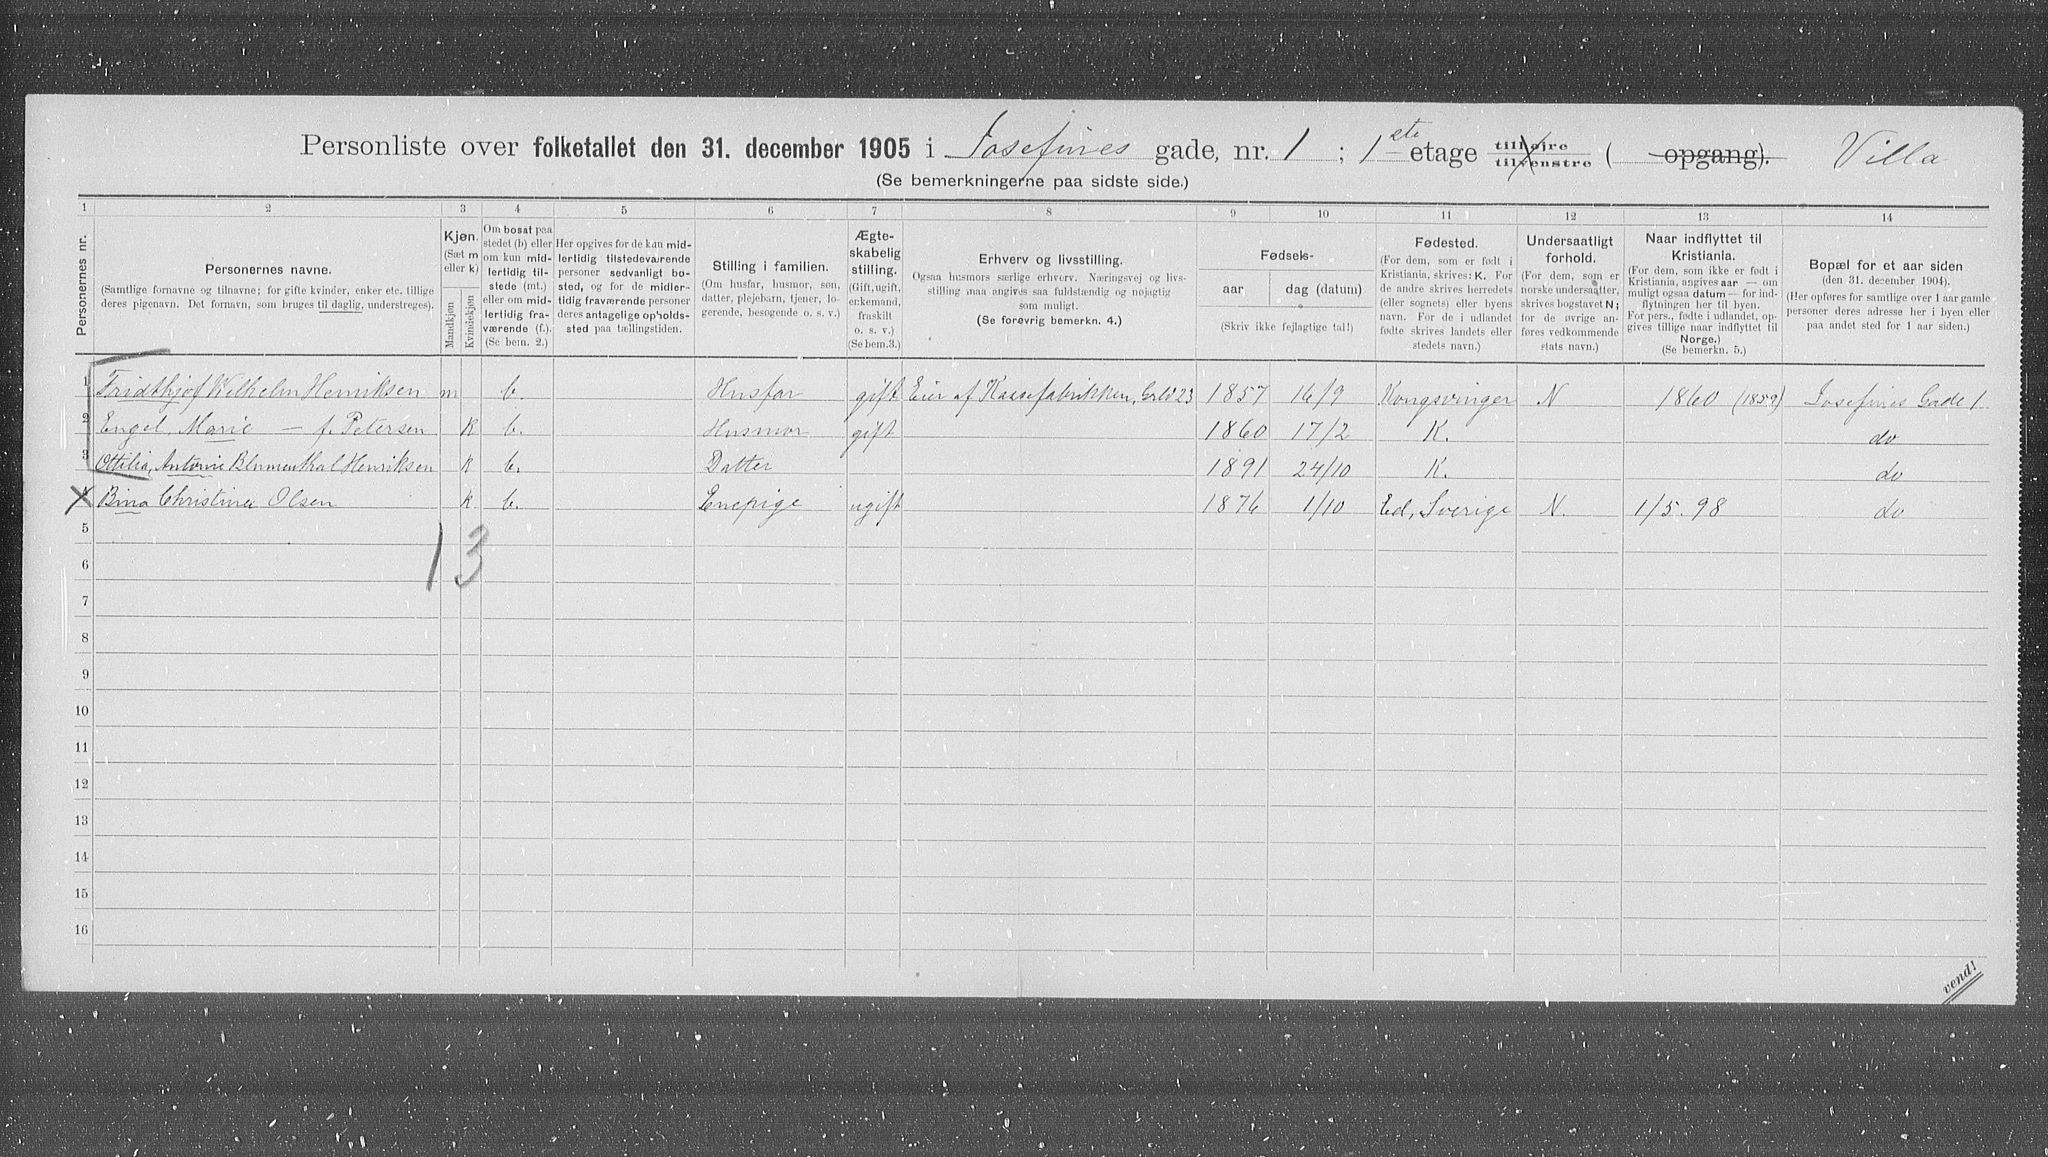 Personliste over folketallet den 31. december 1905 i Josefines gade, nr. 1 ; 1ste etage tilhøjre tilvenstre ( opgang). Villa
(Se bemerkningerne paa sidste side.)
1 2 3 4 5 6 7 8 9 10 11 12 13 14
Personernes nr.
Personernes navne.
(Samtlige fornavne og tilnavne; for gifte kvinder, enker etc. tillige
deres pigenavn. Det fornavn, som bruges til daglig, understreges).
Kjøn.
(Sæt m
eller k)
Mandkjøn
Kvindekjøn
Om bosat paa
stedet (b) eller
om kun mid-
lertidig til-
stede (mt.)
eller om mid-
lertidig fra-
værende (f.).
(Se bem. 2.)
Her opgives for de kun mid-
lertidig tilstedeværende
personer sedvanligt bo-
sted, og for de midler-
tidig fraværende personer
deres antagelige opholds-
sted paa tællingstiden.
Stilling i familien.
(Om husfar, husmor, søn,
datter, plejebarn, tjener, lo-
gerende, besøgende o. s. v.)
Ægte-
skabelig
stilling.
(Gift, ugift,
enkemand,
fraskilt
o. s. v.)
(Se bem. 3.)
Erhverv og livsstilling.
Ogsaa husmors særlige erhverv. Næringsvej og livs-
stilling maa angives saa fuldstændig og nøjagtig
som muligt.
(Se forøvrig bemerkn. 4.)
Fødsels-
aar dag (datum)
(Skriv ikke fejlagtige tal!)
Fødested.
(For dem, som er født i
Kristiania, skrives: K. For
de andre skrives herredets
(eller sognets) eller byens
navn. For de i udlandet
fødte skrives landets eller
stedets navn.)
Undersaatligt
forhold.
(For dem, som er
norske undersaatter,
skrives bogstavet N;
for de øvrige an-
føres vedkommende
stats navn.)
Naar indflyttet til
Kristiania.
(For dem, som ikke er født i
Kristiania, angives aar — om
muligt ogsaa datum — for ind-
flytningen her til byen.
For pers., fødte i udlandet, op-
gives tillige naar indflyttet til
Norge.)
(Se bemerkn. 5.)
Bopæl for et aar siden
(den 31. december 1904).
(Her opføres for samtlige over 1 aar gamle
personer deres adresse her i byen eller
paa andet sted for 1 aar siden.)
1 Fridthjof Wilhelm Henriksen m b. Husfar gift Eier af Kassefabrikken, 23 1857 16/9 Kongsvinger N 1860 (1859) Josefines Gade 1
2 Engel Marie — f. Petersen k b. Husmor gift 1860 17/2 K. do
3 Ottilia, Antonie Blumenthal Henriksen k b. Datter 1891 24/10 K. do
4 Bina Christina Olsen k b. Enepige ugift 1876 1/10 Ed, Sverige N. 1/5. 98 do
5
1 3
6
7
8
9
10
11
12
13
14
15
16
vend!